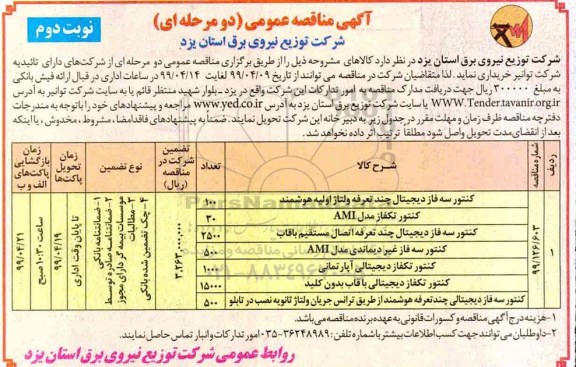 آگهی مناقصه عمومی (دو مرحله ای)
نوبت دوم
شرکت توزیع نیروی برق استان یزد
شرکت توزیع نیروی برق استان یزد در نظر دارد کالاهای مشروحه ذیل را از طریق برگزاری مناقصه عمومی دو مرحله ای از شرکت‌های دارای تائیدیه
شرکت توانیر خریداری نماید. لذا متقاضیان شرکت در مناقصه می توانند از تاریخ ۹۹/۰۴/۰۹ لغایت ۹۹/۰۴/۱۴ در ساعات اداری در قبال ارائه فیش بانکی
به مبلغ ۳۰۰۰۰۰ ریال جهت دریافت مدارک مناقصه به امور تدارکات این شرکت واقع در یزد ـ بلوار شهید منتظر قائم یا به سایت شرکت توانیر به آدرس
WWW.Tender.tavanir.org.ir یا سایت شرکت توزیع برق استان یزد به آدرس www.yed.co.ir مراجعه و پیشنهادهای خود را باتوجه به مندرجات
دفترچه مناقصه ظرف زمان و مهلت مقرر در جدول زیر به دبیرخانه این شرکت تحویل نمایند. ضمناً به پیشنهادهای فاقد امضا، مشروط، مخدوش، یا اینکه
بعد از انقضای مدت تحویل واصل شود مطلقا ترتیب اثر داده نخواهد شد.
ردیف
شماره مناقصه
شرح کالا
تعداد
تضمین شرکت در مناقصه (ریال)
نوع تضمین
زمان تحویل پاکت‌ها
زمان بازگشایی پاکت‌های الف و ب
۹۹/۱۲۶/۶۰۳
کنتور سه فاز دیجیتال چند تعرفه ولتاژ اولیه هوشمند ۱۰۰
کنتور تکفاز مدل AMI ۳۰
کنتور سه فاز دیجیتال چند تعرفه اتصال مستقیم باقاب ۲۵۰۰
کنتور سه فاز غیر دیماندی مدل AMI ۵۰۰
کنتور تکفاز دیجیتالی آپارتمانی ۱۰۰۰
کنتور تکفاز دیجیتالی با قاب بدون کلید ۱۵۰۰۰
کنتور سه فاز دیجیتالی چندتعرفه هوشمند از طریق ترانس جریان ولتاژ ثانویه نصب در تابلو ۵۰۰
۳,۲۶۳,۰۰۰,۰۰۰
۱- ضمانتنامه بانکی
۲- ضمانتنامه صادره توسط موسسات بیمه گر دارای مجوز
۳- مطالبات
۴- چک تضمین شده بانکی
تا پایان وقت اداری ۹۹/۰۴/۱۹
ساعت ۱۰:۳۰ صبح ۹۹/۰۴/۲۱
۱- هزینه درج آگهی مناقصه و کسورات قانونی به عهده برنده مناقصه می باشد.
۲- داوطلبان می توانند جهت کسب اطلاعات بیشتر با شماره تلفن: ۳۶۲۴۸۹۸۹-۰۳۵ امور تدارکات و انبار تماس حاصل نمایند.
روابط عمومی شرکت توزیع نیروی برق استان یزد